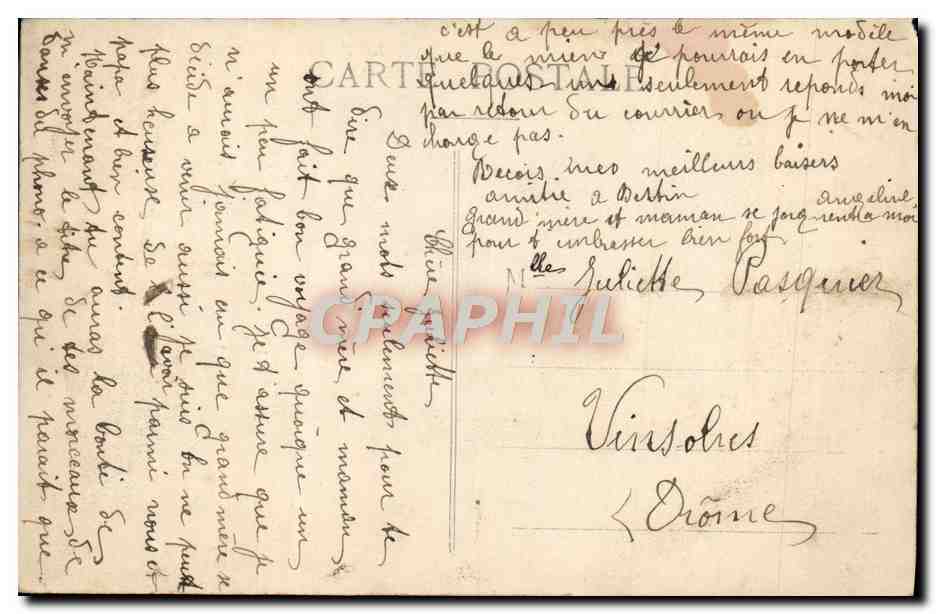 CARTE POSTALE
Chère Juliette
Deux mots seulement pour te
dire que grand mère et maman
ont fait bon voyage quoique un
un peu fatiguée. je t'assure que je
n'aurais jamais cru que grand mère se
décide a venir aussi je suis on ne peut
plus heureuse de l'avoir parmi nous et
papa et bien content.
Maintenant tu auras la bonté de
m'envoyer le titre de tes morceaux de
du phono. a ce qu'il parait que
c'est a peu près le même modèle
que le mien je pourais en porter
quelques uns seulement reponds moi
par retour du courrier ou je ne m'en
charge pas.
Recois mes meilleurs baisers
amitié a Bertin
angeline
Grand mère et maman se joignent a moi
pour t embrasser bien fort
Mlle Juliette Pasquier
Vinsobres
Drôme
CPAPHIL